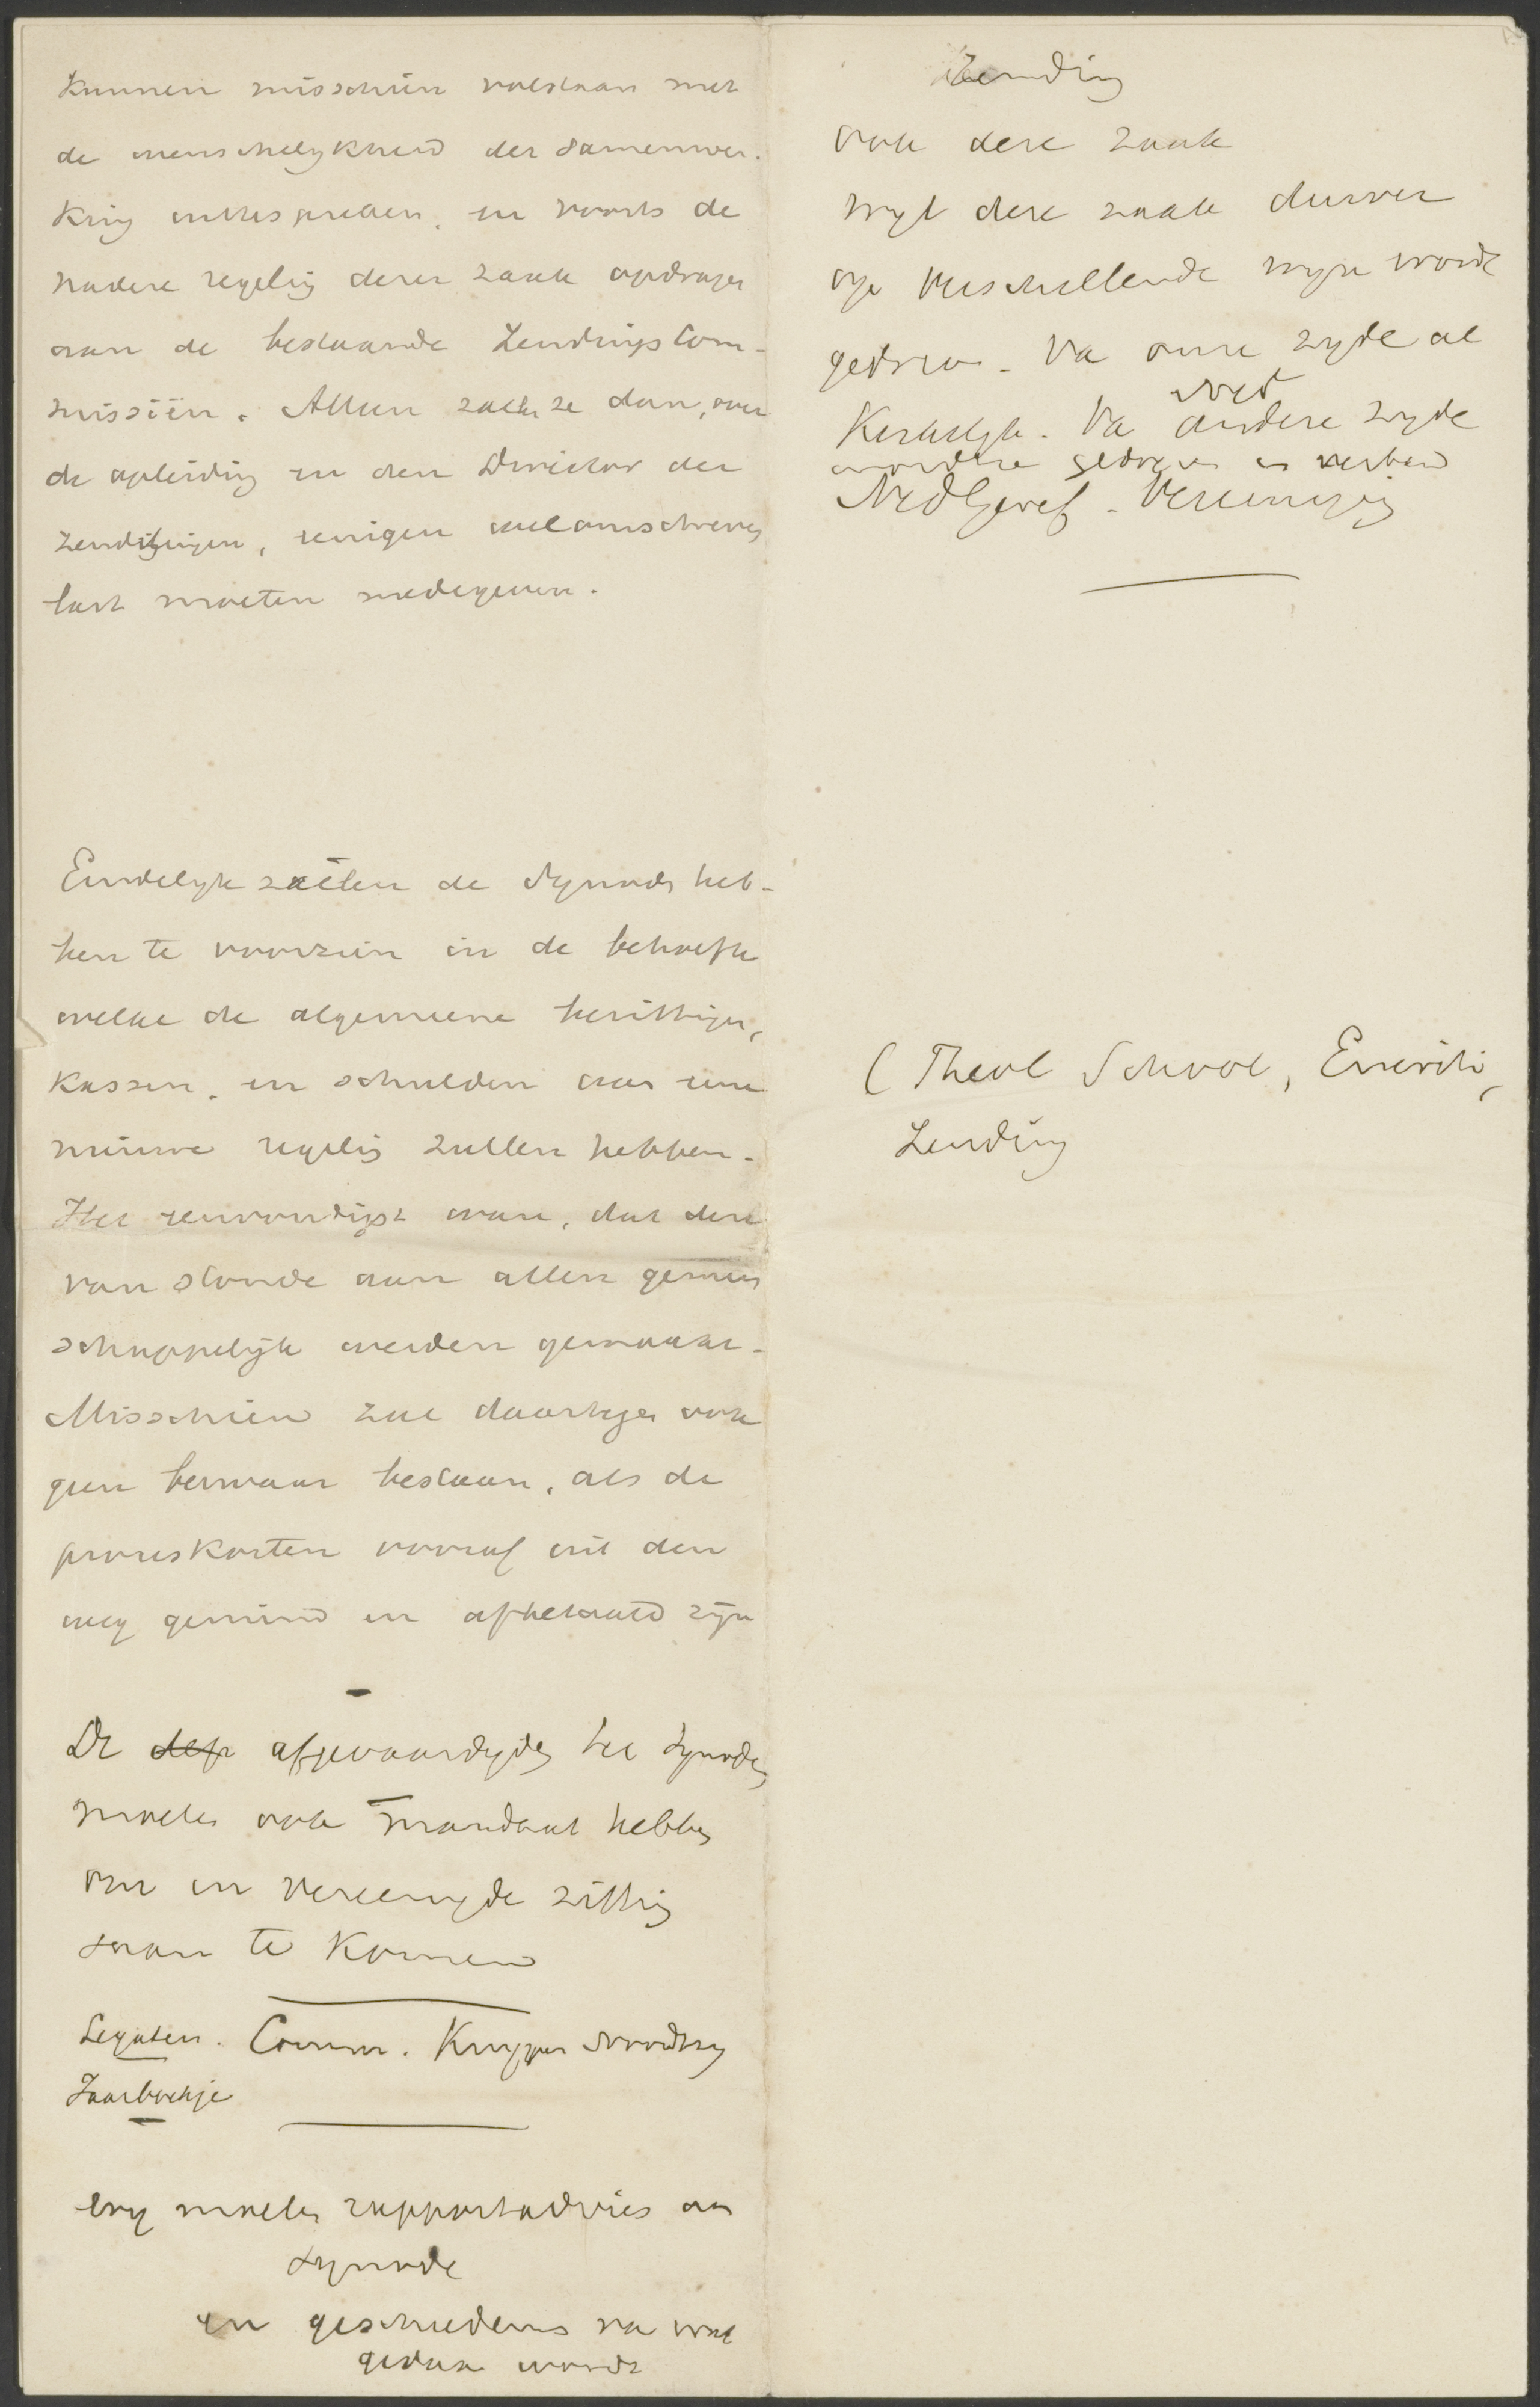 kunnen misschien volstaan met
de wenschelykheid der samenwer-
king uittespreken, en voorts de
nadere regeling dezer zaak opdragen
aan de bestaande Zendingscom-
missiën. Alleen zullen ze dan, over
de opleiding en den Director der
zendelingen, eenigen welomschreven
last moeten medegeven.
Eindelyk zullen de Synodes heb-
ben te voorzien in de behoefte
welke de algemeene bezittingen,
kassen, en schulden aan eene
nieuwe regeling zullen hebben.
Het eenvoudigst ware, dat deze
van stonde aan allen gemeen
schappelijk werden gemaakt.
Misschien zal daartegen ook
geen bezwaar bestaan, als de
proceskosten vooraf uit den
weg geruimd en afbetaald zijn
De dep afgevaardigden ter Synode
moeten ook mandaat hebben
om in vereenigde zitting
saam te komen
Legaten. Comm. Kuyper Noordtzy
Jaarboekje
moeten rapportadvies aan
Synode
en geschiedenis van wat
gedaan wordt
Zending
ook deze zaak
wyl deze zaak
op verschillende wyze wordt
gedreven. Van onze zyde al
niet
Kerkelyk. Van andere zyde
gedreven in verband
Ned Geref. Vereeniging
(Theol School, Emeriti,
Zending